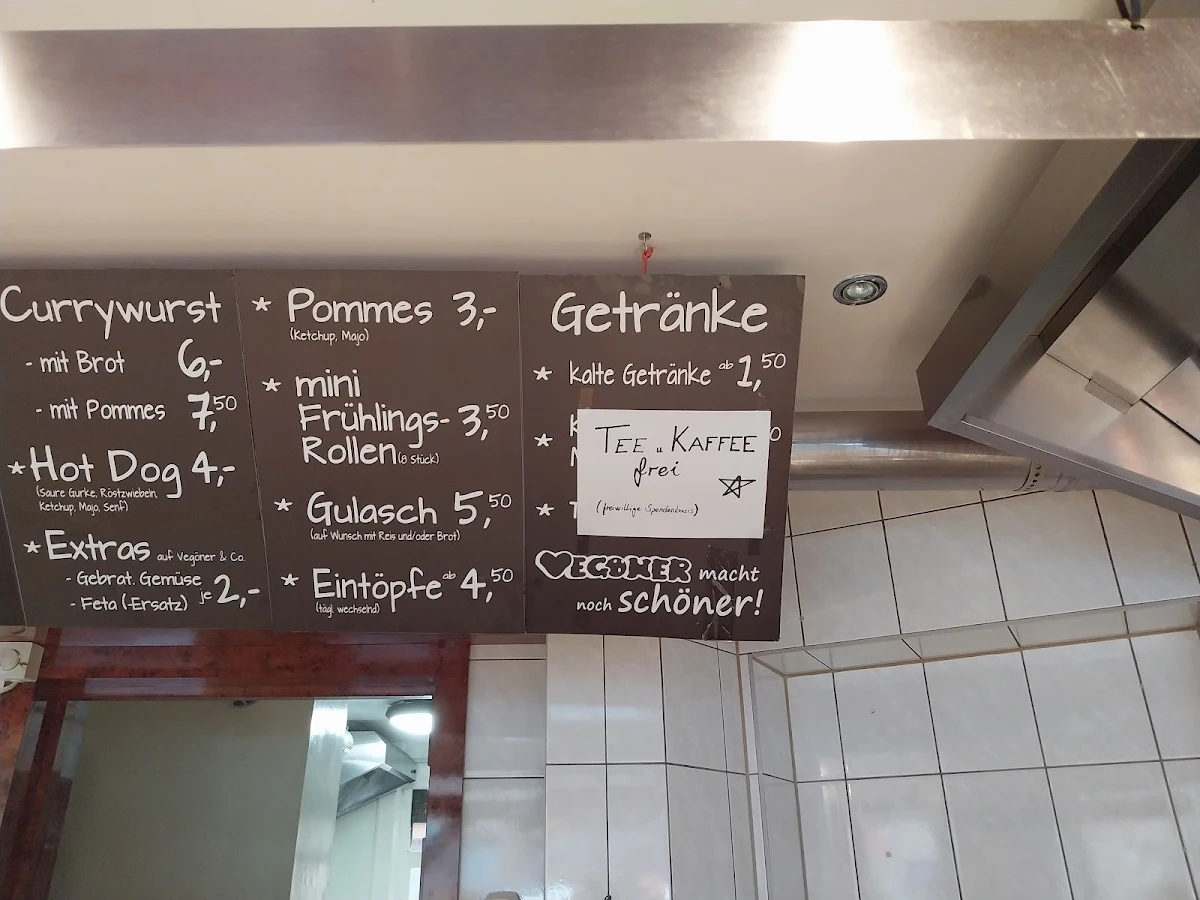 Currywurst
- mit Brot 6,-
- mit Pommes 7,50
* Hot Dog 4,-
(Saure Gurke, Röstzwiebeln,
Ketchup, Majo, Senf)
* Extras auf Vegöner & Co.
- Gebrat. Gemüse
- Feta (-Ersatz) je 2,-
* Pommes 3,-
(Ketchup, Majo)
* mini
Frühlings- 3,50
Rollen (8 Stück)
* Gulasch 5,50
(auf Wunsch mit Reis und/oder Brot)
* Eintöpfe ab 4,50
(tägl. wechselnd)
Getränke
* Kalte Getränke ab 1,50
TEE u. KAFFEE
frei
(freiwillige Spendenbasis)
VEGÖNER macht
noch schöner!